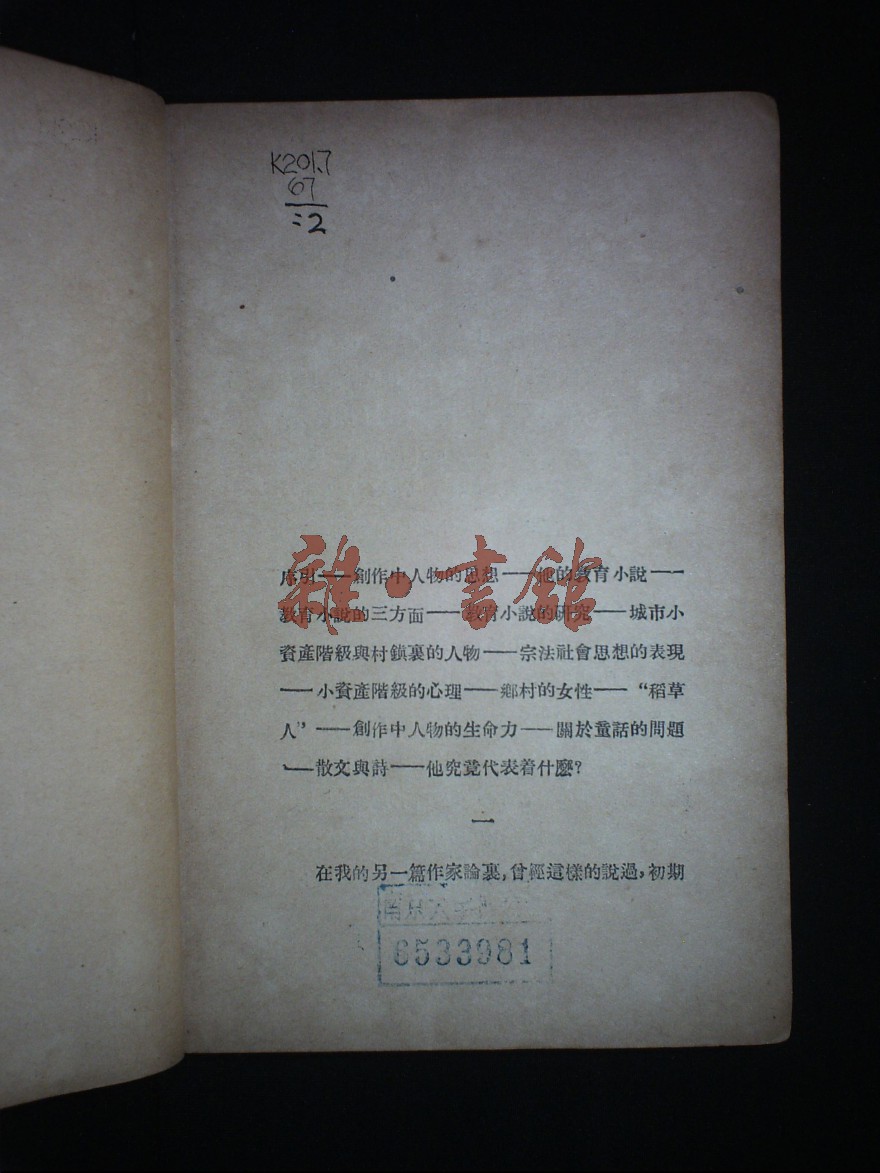 K201.7
67
:2
雜·書館
序引——創作中人物的思想——他的教育小說——
教育小說的三方面——教育小說的研究——城市小
資產階級與村鎮裏的人物——宗法社會思想的表現
——小資產階級的心理——鄉村的女性——“稻草
人”——創作中人物的生命力——關於童話的問題
——散文與詩——他究竟代表着什麼?
一
在我的另一篇作家論裏,曾經這樣的說過,初期
南京大學
6533981